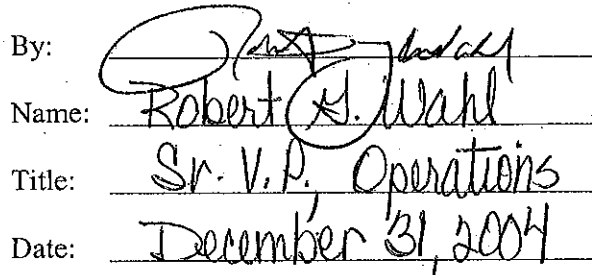 By:
Name: Robert G. Wahl
Title: Sr. V.P., Operations
Date: December 31, 2004